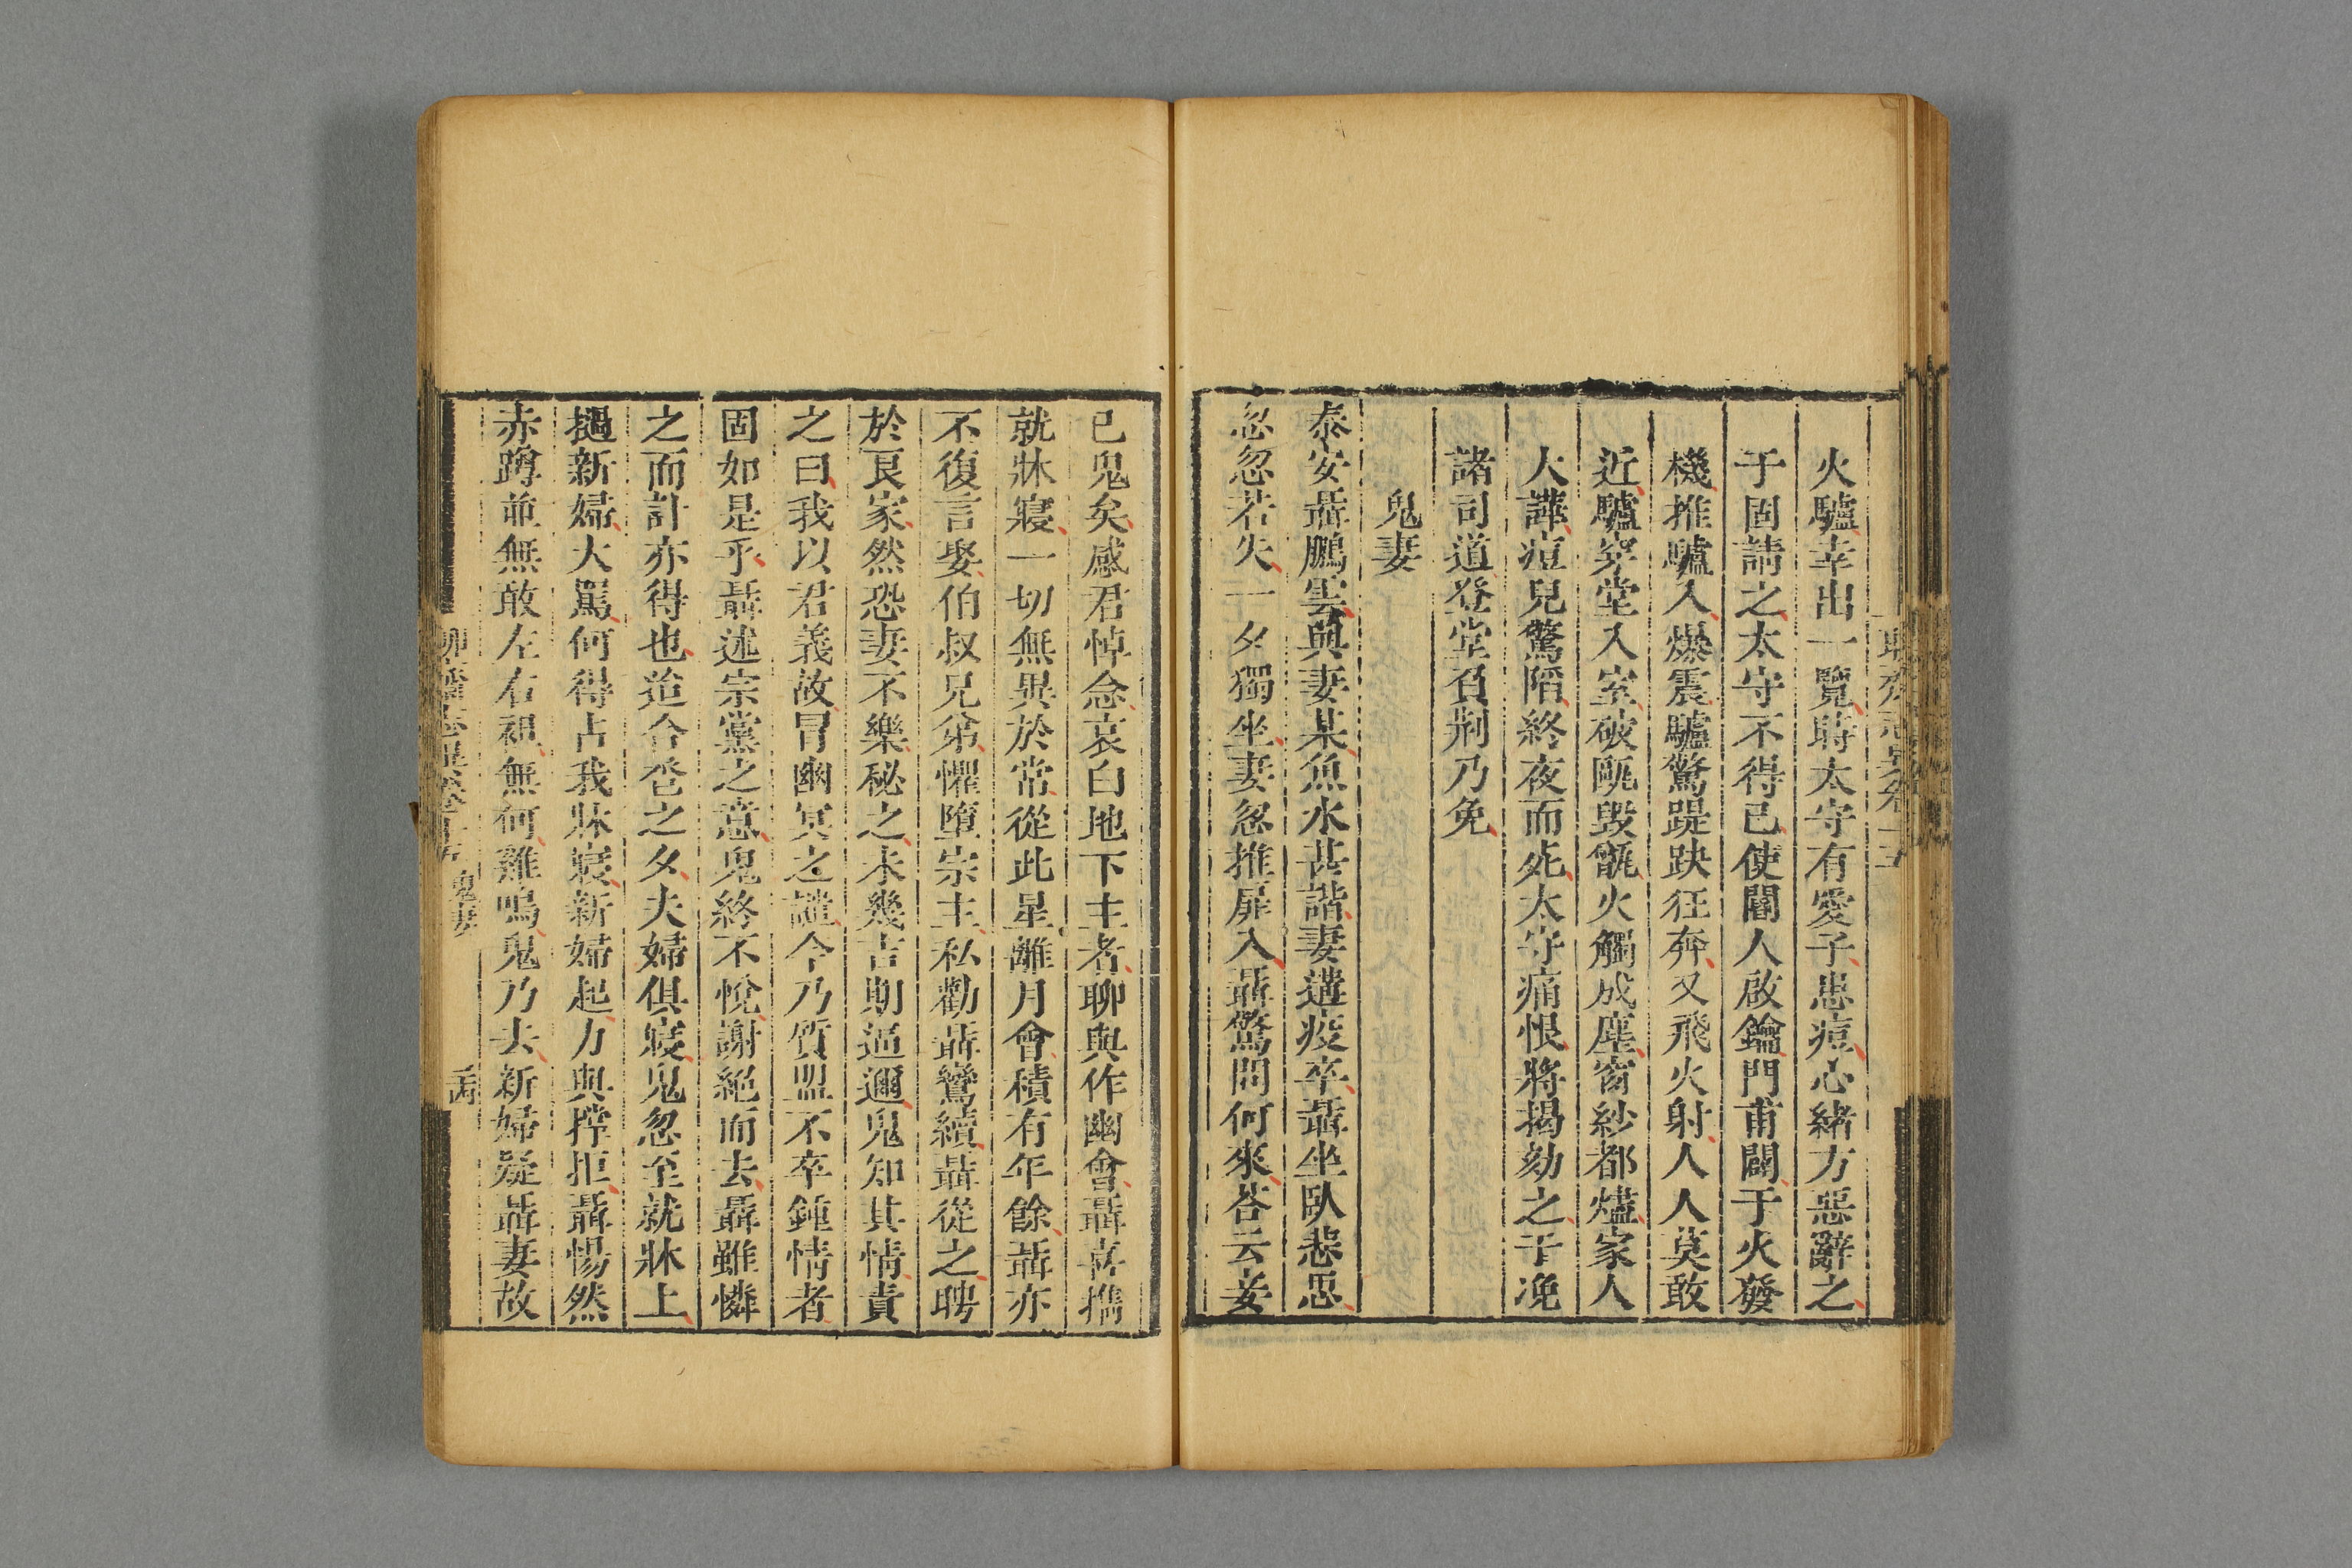 火驢幸出一覽時太守有愛子患痘心緒方惡辭之
于固請之太守不得已使閽人啟鑰門甫闢于火發
機推驢入爆震驢驚踶趹狂奔又飛火射人人莫敢
近驢穿堂入室破甌毀甑火觸成塵窗紗都燼家人
大譁痘兒驚陷終夜而死太守痛恨將揭劾之于凂
諸司道登堂負荆乃免
鬼妻
泰安聶鵬雲與妻某魚水甚諧妻遘疫卒聶坐臥悲思
忽忽若失一夕獨坐妻忽推扉入聶驚問何來荅云妾
已鬼矣感君悼念哀白地下主者聊與作幽會聶喜攜
就牀寢一切無異於常從此星離月會積有年餘聶亦
不復言娶伯叔兄弟懼墮宗主私勸聶鸞續聶從之聘
於良家然恐妻不樂秘之未幾吉期逼邇鬼知其情責
之曰我以君義故冒幽冥之譴今乃質盟不卒鍾情者
固如是乎聶述宗黨之意鬼終不悅謝絕而去聶雖憐
之而計亦得也迨合卺之夕夫婦俱寢鬼忽至就牀上
撾新婦大罵何得占我牀寢新婦起方與撑拒聶惕然
赤蹲並無敢左右袒無何雞鳴鬼乃去新婦疑聶妻故
鬼妻